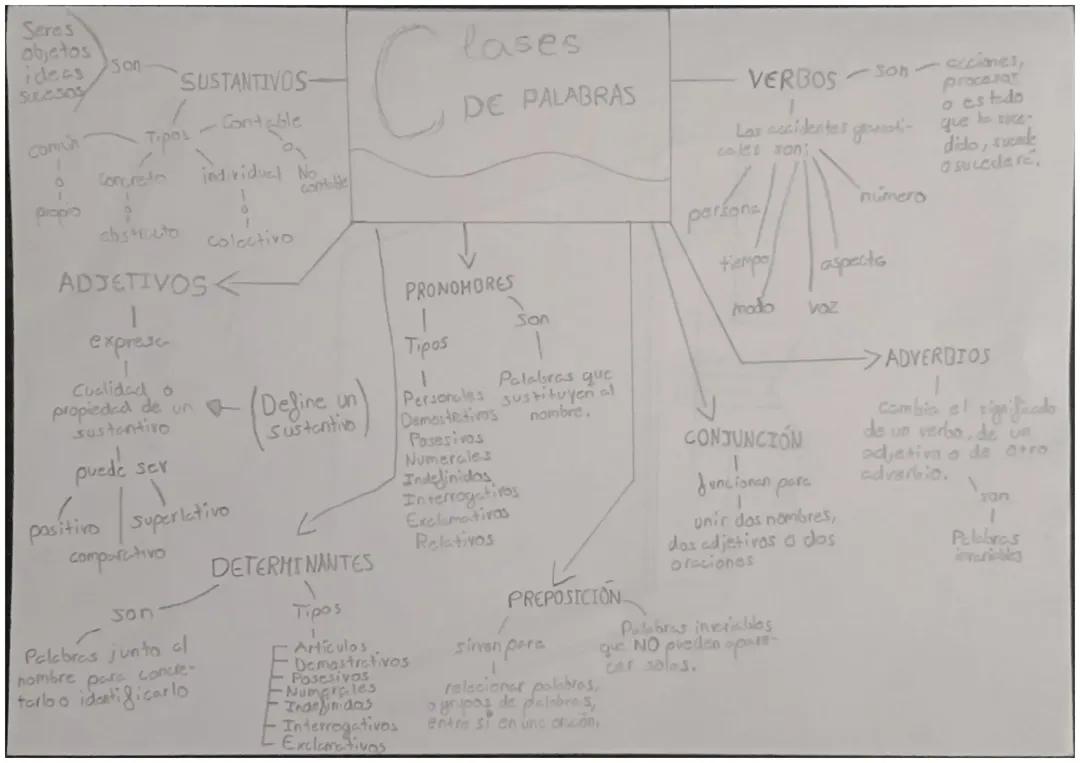 Clases
DE PALABRAS
Seres
objetos
ideas
sucesos
son
SUSTANTIVOS
Tipos
común
o
propio
concreto
o
abstracto
individual
o
colectivo
Contable
o
No
contable
VERBOS
son
acciones,
procesos
o estado
que ha suce-
dido, sucede
o sucederá.
Los accidentes gramati-
cales son:
persona
tiempo
modo
voz
aspecto
número
ADJETIVOS
expresa
Cualidad o
propiedad de un
sustantivo
(Define un
sustantivo)
puede ser
positivo
comparativo
superlativo
PRONOMBRES
Tipos
Personales
Demostrativos
Posesivos
Numerales
Indefinidos
Interrogativos
Exclamativos
Relativos
son
Palabras que
sustituyen al
nombre.
ADVERBIOS
Cambia el significado
de un verbo, de un
adjetivo o de otro
adverbio.
son
Palabras
invariables
CONJUNCIÓN
funcionan para
unir dos nombres,
dos adjetivos o dos
oraciones
DETERMINANTES
son
Palabras junto al
nombre para concre-
tarlo o identificarlo
Tipos
Artículos
Demostrativos
Posesivos
Numerales
Indefinidos
Interrogativos
Exclamativos
PREPOSICIÓN
sirven para
relacionar palabras,
o grupos de palabras,
entre si en una oración.
Palabras invariables
que NO pueden apare-
cer solas.